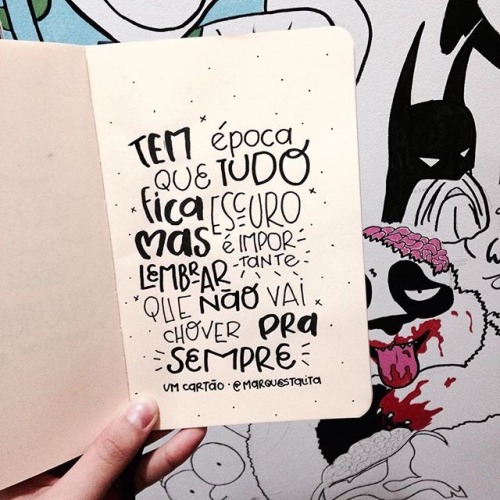 TEM época
QUE TUDO
fica ESCURO
mas é IMPOR-
LEMBRAR -TANTE
QUE NÃO VAI
CHOVER PRA
SEMPRE
UM CARTÃO · @MARQUESTALITA